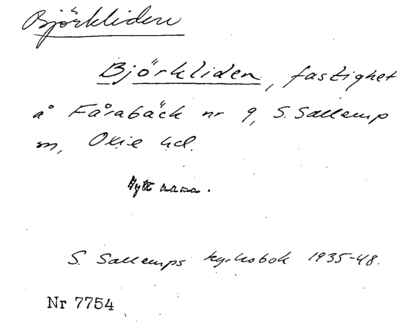 Björkliden
Björkliden, fastighet
å Fårabäck nr 9, S. Sallerup
sn, Oxie hd.
Nytt namn.
S. Sallerups kyrkobok 1935-48.
Nr 7754